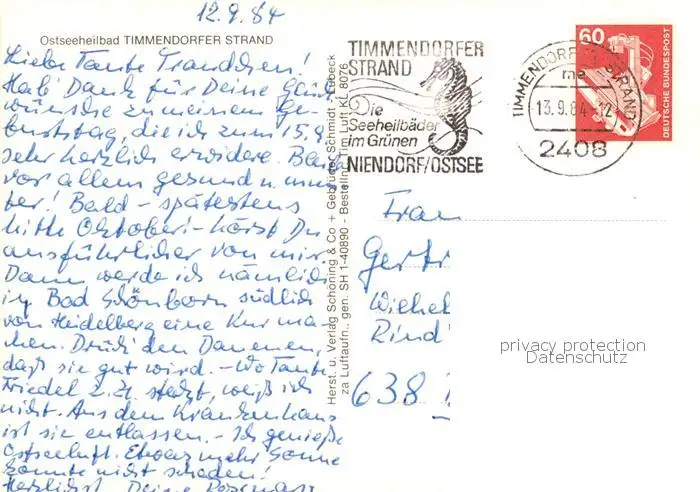 12.9.84
Ostseeheilbad TIMMENDORFER STRAND
Liebe Tante Traudchen!
Hab' Dank für Deine Glück-
wünsche zu meinem Ge-
burtstag, die ich zum 15.9.
sehr herzlich erwidere. Bleib
vor allem gesund u. mun-
ter! Bald - spätestens
Mitte Oktober - hörst Du
ausführlicher von mir.
Dann werde ich nämlich
in Bad Schönborn südlich
von Heidelberg eine Kur ma-
chen. Drück' den Daumen,
daß sie gut wird. - Wo Tante
Friedel z. Zt. steckt, weiß ich
nicht. Aus dem Krankenhaus
ist sie entlassen. - Ich genieße
Ostseeluft. Etwas mehr Sonne
könnte nicht schaden!
Herzlichst Deine Rosemarie
Herst. u. Verlag Schöning & Co + Gebrüder Schmidt, Lübeck
za Luftaufn., gen. SH 1-40890 - Bestelln. Tim Luft KL 8076
TIMMENDORFER
STRAND
Die
Seeheilbäder
im Grünen
NIENDORF/OSTSEE
TIMMENDORFER STRAND
me
13.9.84-12
2408
60
DEUTSCHE BUNDESPOST
Frau
Gertr
Wilhel
Rind
638
privacy protection
Datenschutz